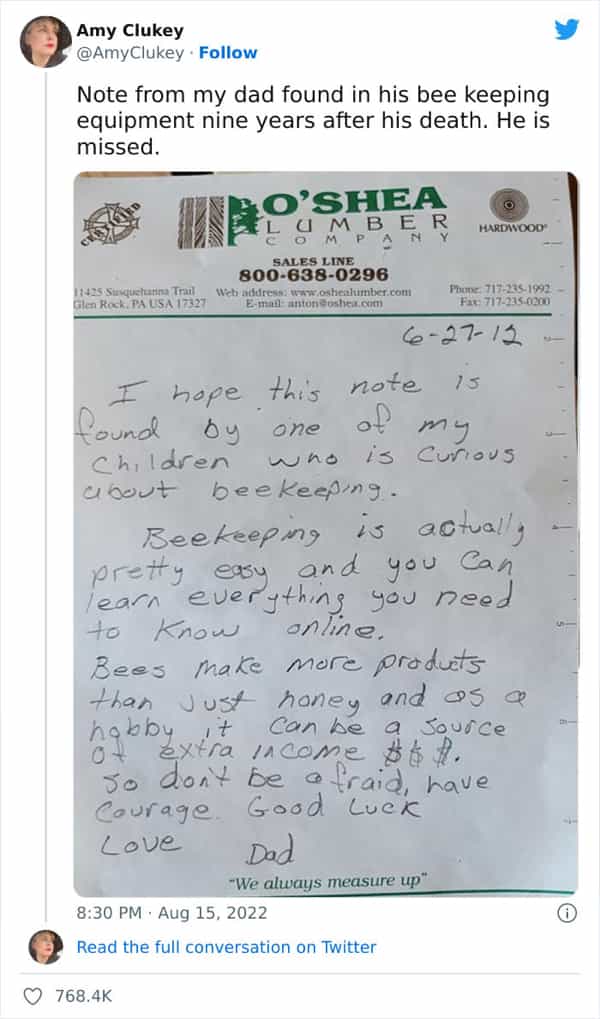 Amy Clukey
@AmyClukey · Follow
Note from my dad found in his bee keeping
equipment nine years after his death. He is
missed.
CERTIFIED
O'SHEA
LUMBER
COMPANY
HARDWOOD
SALES LINE
800-638-0296
11425 Susquehanna Trail
Glen Rock, PA USA 17327
Web address: www.oshealumber.com
E-mail: anton@oshea.com
Phone: 717-235-1992
Fax: 717-235-0200
6-27-12
I hope this note is
found by one of my
children who is curious
about beekeeping.
Beekeeping is actually
pretty easy and you can
learn everything you need
to know online.
Bees make more products
than just honey and as a
hobby it can be a source
of extra income $$$.
So don't be afraid, have
courage. Good Luck
Love Dad
"We always measure up"
8:30 PM · Aug 15, 2022
Read the full conversation on Twitter
768.4K